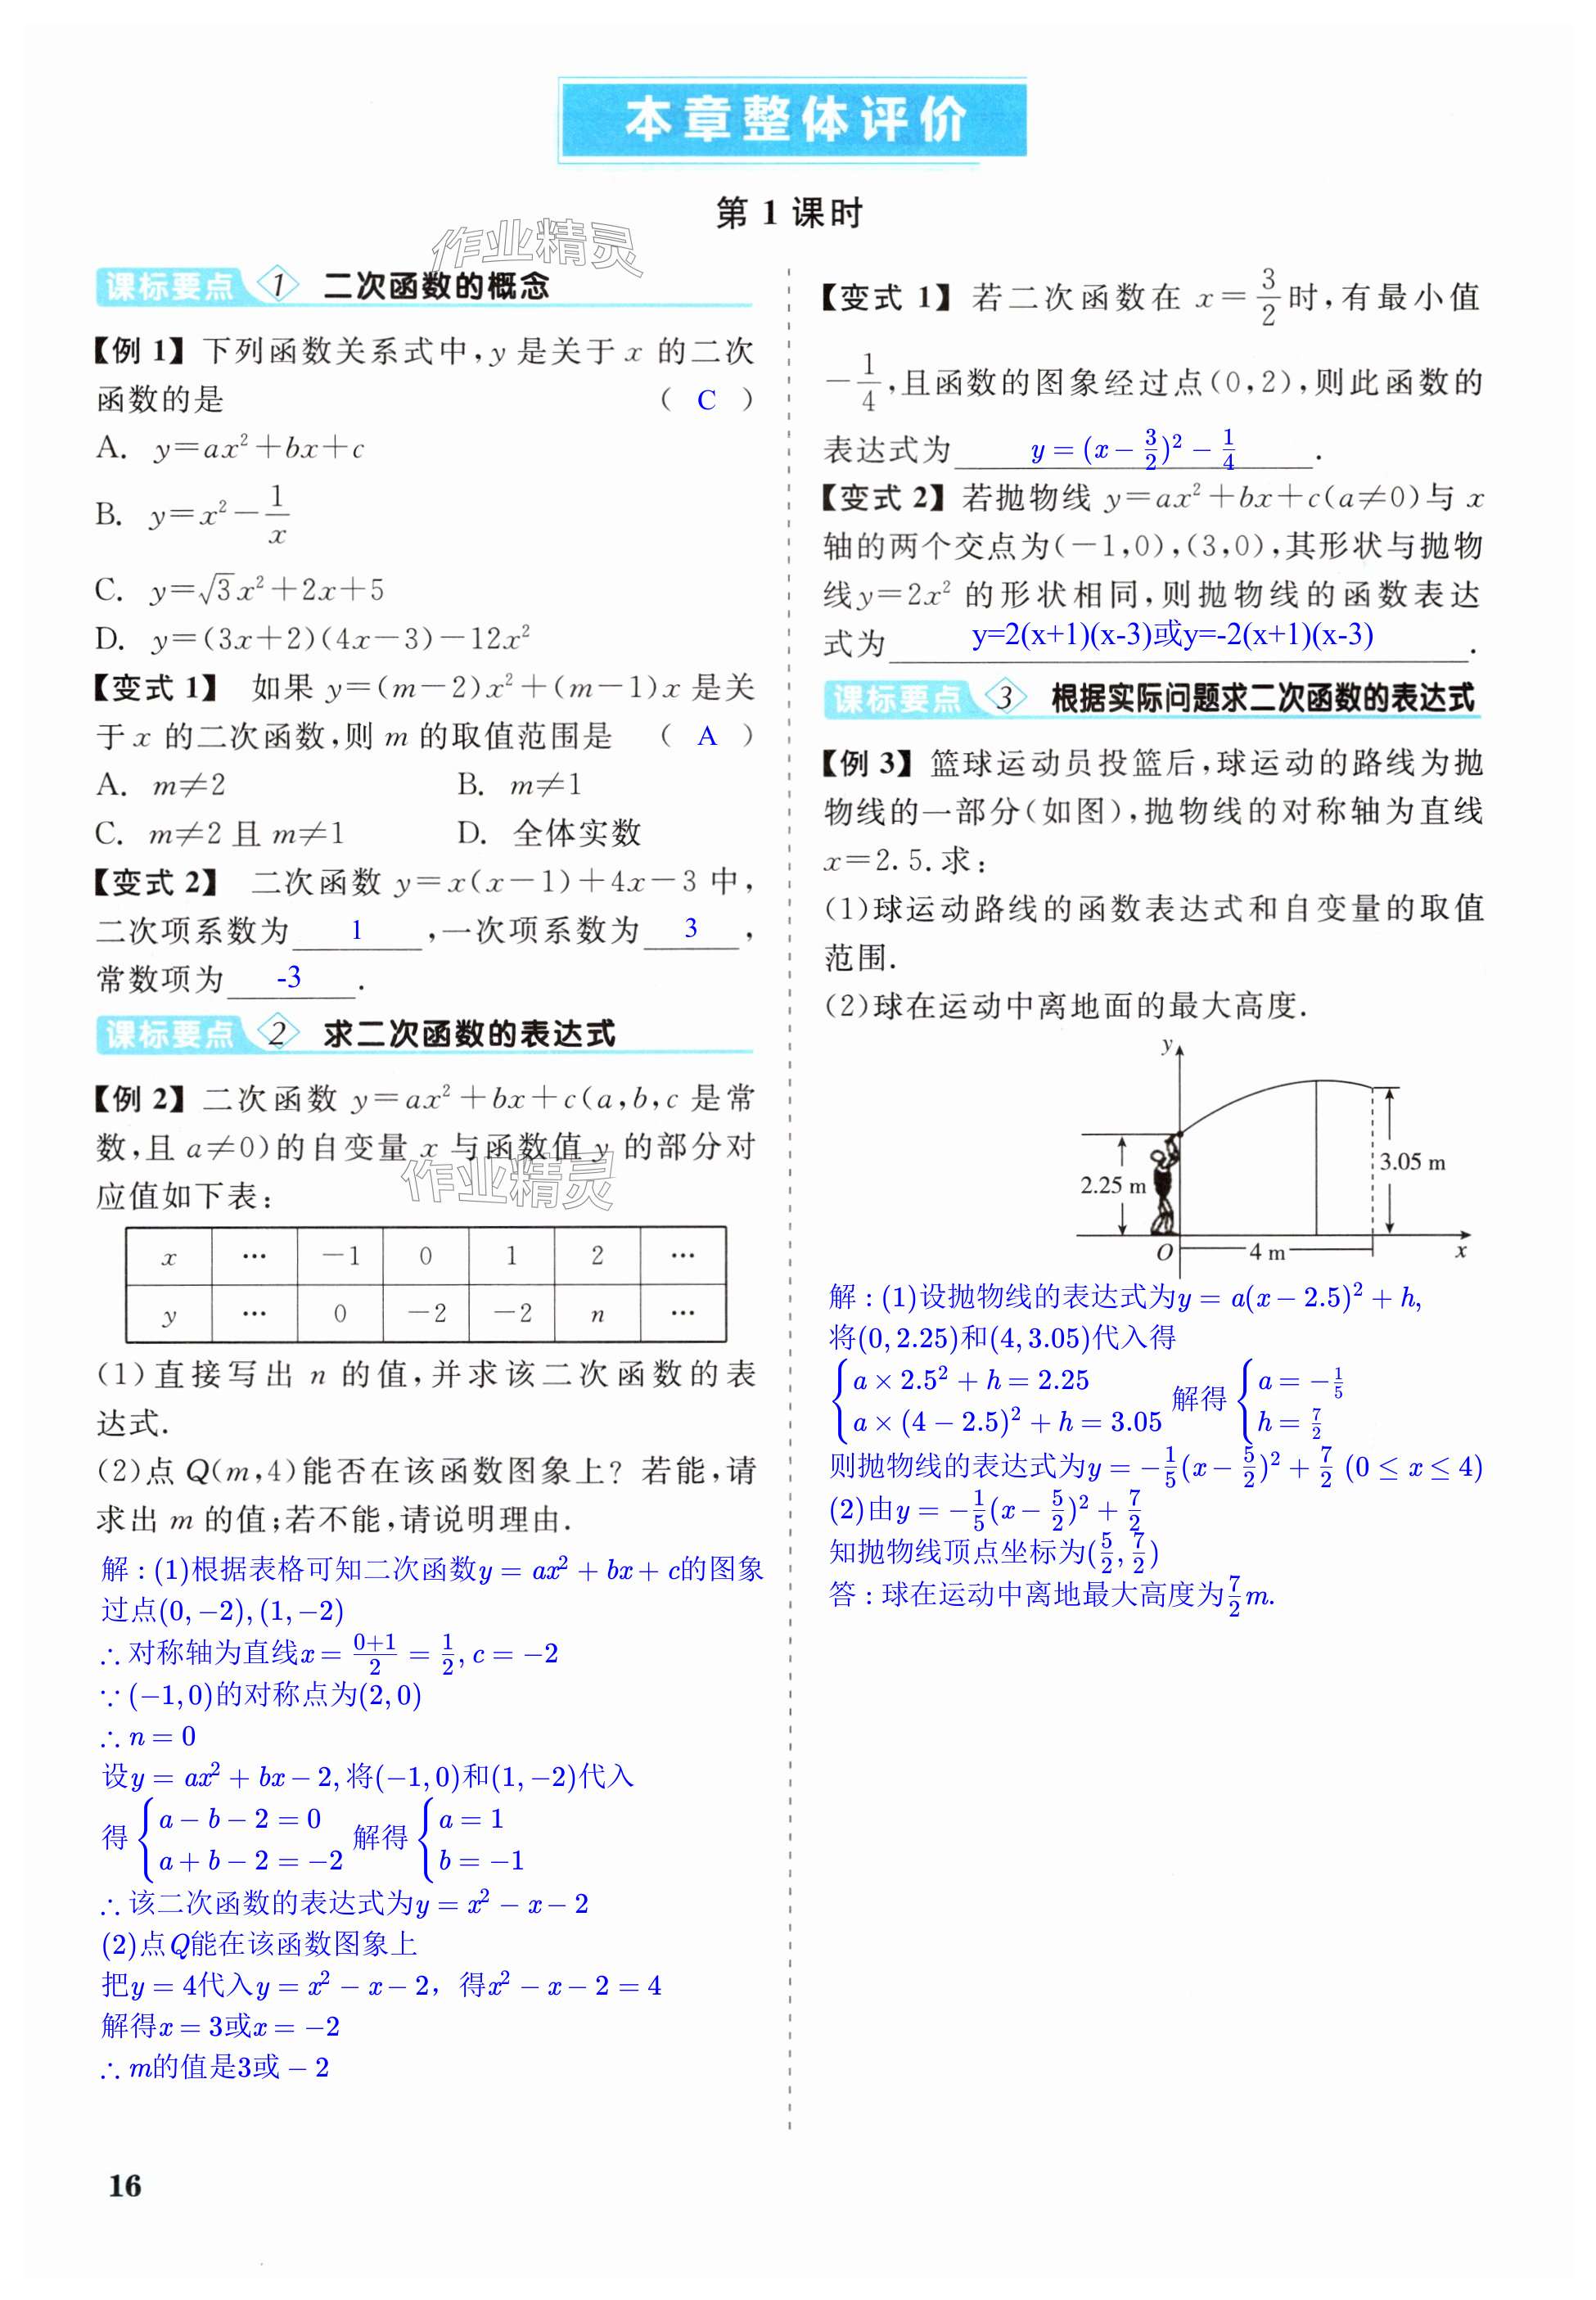 本章整体评价
第 1 课时
作业精灵
课标要点 1 二次函数的概念
【例 1】下列函数关系式中,y 是关于 x 的二次
函数的是 ( C )
A. y=ax²+bx+c
B. y=x²-1/x
C. y=√3x²+2x+5
D. y=(3x+2)(4x-3)-12x²
【变式 1】 如果 y=(m-2)x²+(m-1)x 是关
于 x 的二次函数,则 m 的取值范围是 ( A )
A. m≠2 B. m≠1
C. m≠2 且 m≠1 D. 全体实数
【变式 2】 二次函数 y=x(x-1)+4x-3 中,
二次项系数为 1 ,一次项系数为 3 ,
常数项为 -3 .
课标要点 2 求二次函数的表达式
【例 2】二次函数 y=ax²+bx+c(a,b,c 是常
数,且 a≠0)的自变量 x 与函数值 y 的部分对
作业精灵
应值如下表:
x … -1 0 1 2 …
y … 0 -2 -2 n …
(1)直接写出 n 的值,并求该二次函数的表
达式.
(2)点 Q(m,4)能否在该函数图象上? 若能,请
求出 m 的值;若不能,请说明理由.
解:(1)根据表格可知二次函数y=ax²+bx+c的图象
过点(0,-2),(1,-2)
∴对称轴为直线x=(0+1)/2=1/2,c=-2
∵(-1,0)的对称点为(2,0)
∴n=0
设y=ax²+bx-2,将(-1,0)和(1,-2)代入
得{a-b-2=0 a+b-2=-2 解得{a=1 b=-1
∴该二次函数的表达式为y=x²-x-2
(2)点Q能在该函数图象上
把y=4代入y=x²-x-2，得x²-x-2=4
解得x=3或x=-2
∴m的值是3或-2
16
【变式 1】若二次函数在 x=3/2时,有最小值
-1/4,且函数的图象经过点(0,2),则此函数的
表达式为 y=(x-3/2)²-1/4 .
【变式 2】若抛物线 y=ax²+bx+c(a≠0)与 x
轴的两个交点为(-1,0),(3,0),其形状与抛物
线y=2x² 的形状相同,则抛物线的函数表达
式为 y=2(x+1)(x-3)或y=-2(x+1)(x-3) .
课标要点 3 根据实际问题求二次函数的表达式
【例 3】篮球运动员投篮后,球运动的路线为抛
物线的一部分(如图),抛物线的对称轴为直线
x=2.5.求:
(1)球运动路线的函数表达式和自变量的取值
范围.
(2)球在运动中离地面的最大高度.
y
3.05 m
2.25 m
O 4 m x
解:(1)设抛物线的表达式为y=a(x-2.5)²+h,
将(0,2.25)和(4,3.05)代入得
{a×2.5²+h=2.25 a×(4-2.5)²+h=3.05 解得{a=-1/5 h=7/2
则抛物线的表达式为y=-1/5(x-5/2)²+7/2 (0≤x≤4)
(2)由y=-1/5(x-5/2)²+7/2
知抛物线顶点坐标为(5/2,7/2)
答:球在运动中离地最大高度为7/2m.